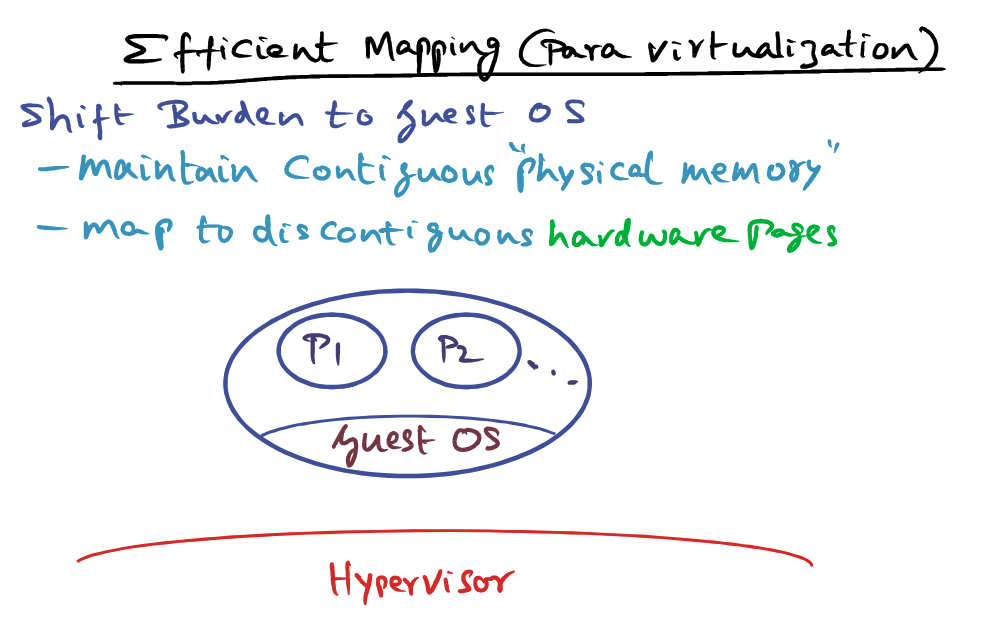 Efficient Mapping (Para virtualization)
Shift Burden to guest OS
- maintain Contiguous "physical memory"
- map to discontiguous hardware pages
P1 P2 ...
guest OS
Hypervisor